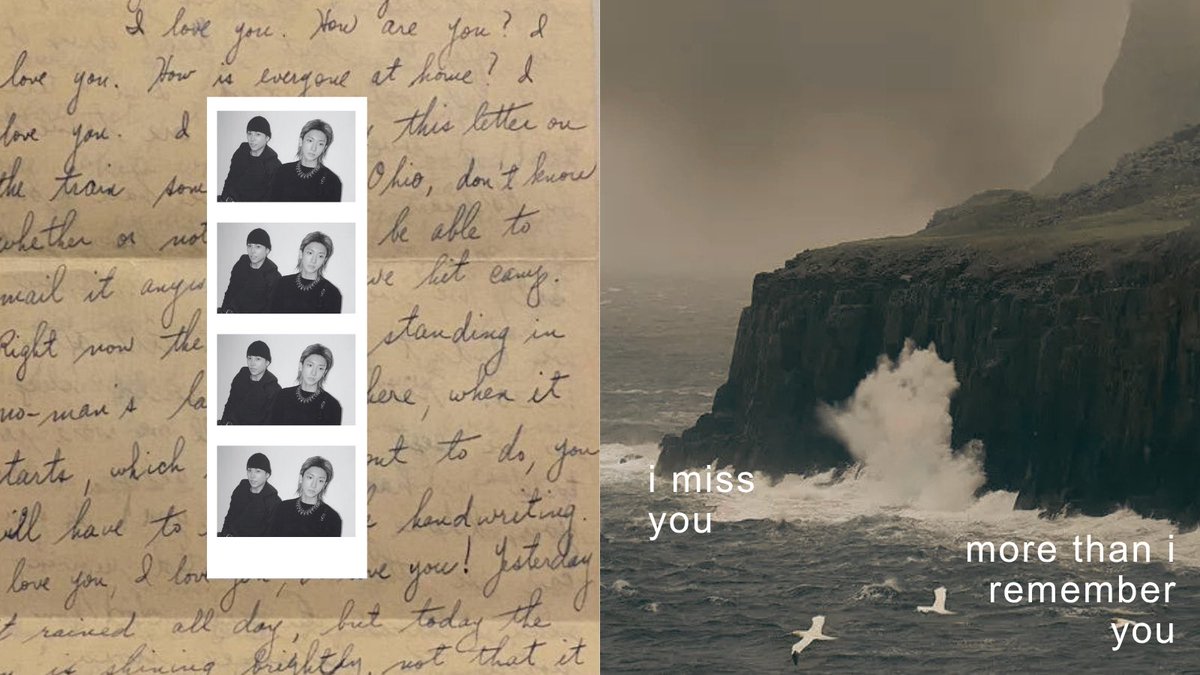 I love you. How are you? I
love you. How is everyone at home? I
love you. I this letter on
the train Ohio, don't know
whether or not be able to
mail it hit camp.
Right now the standing in
no-man's here, when it
starts, which to do, you
will have to handwriting.
love you, I you! Yesterday
it rained all day, but today the
is shining brightly, not that it
i miss
you
more than i
remember
you